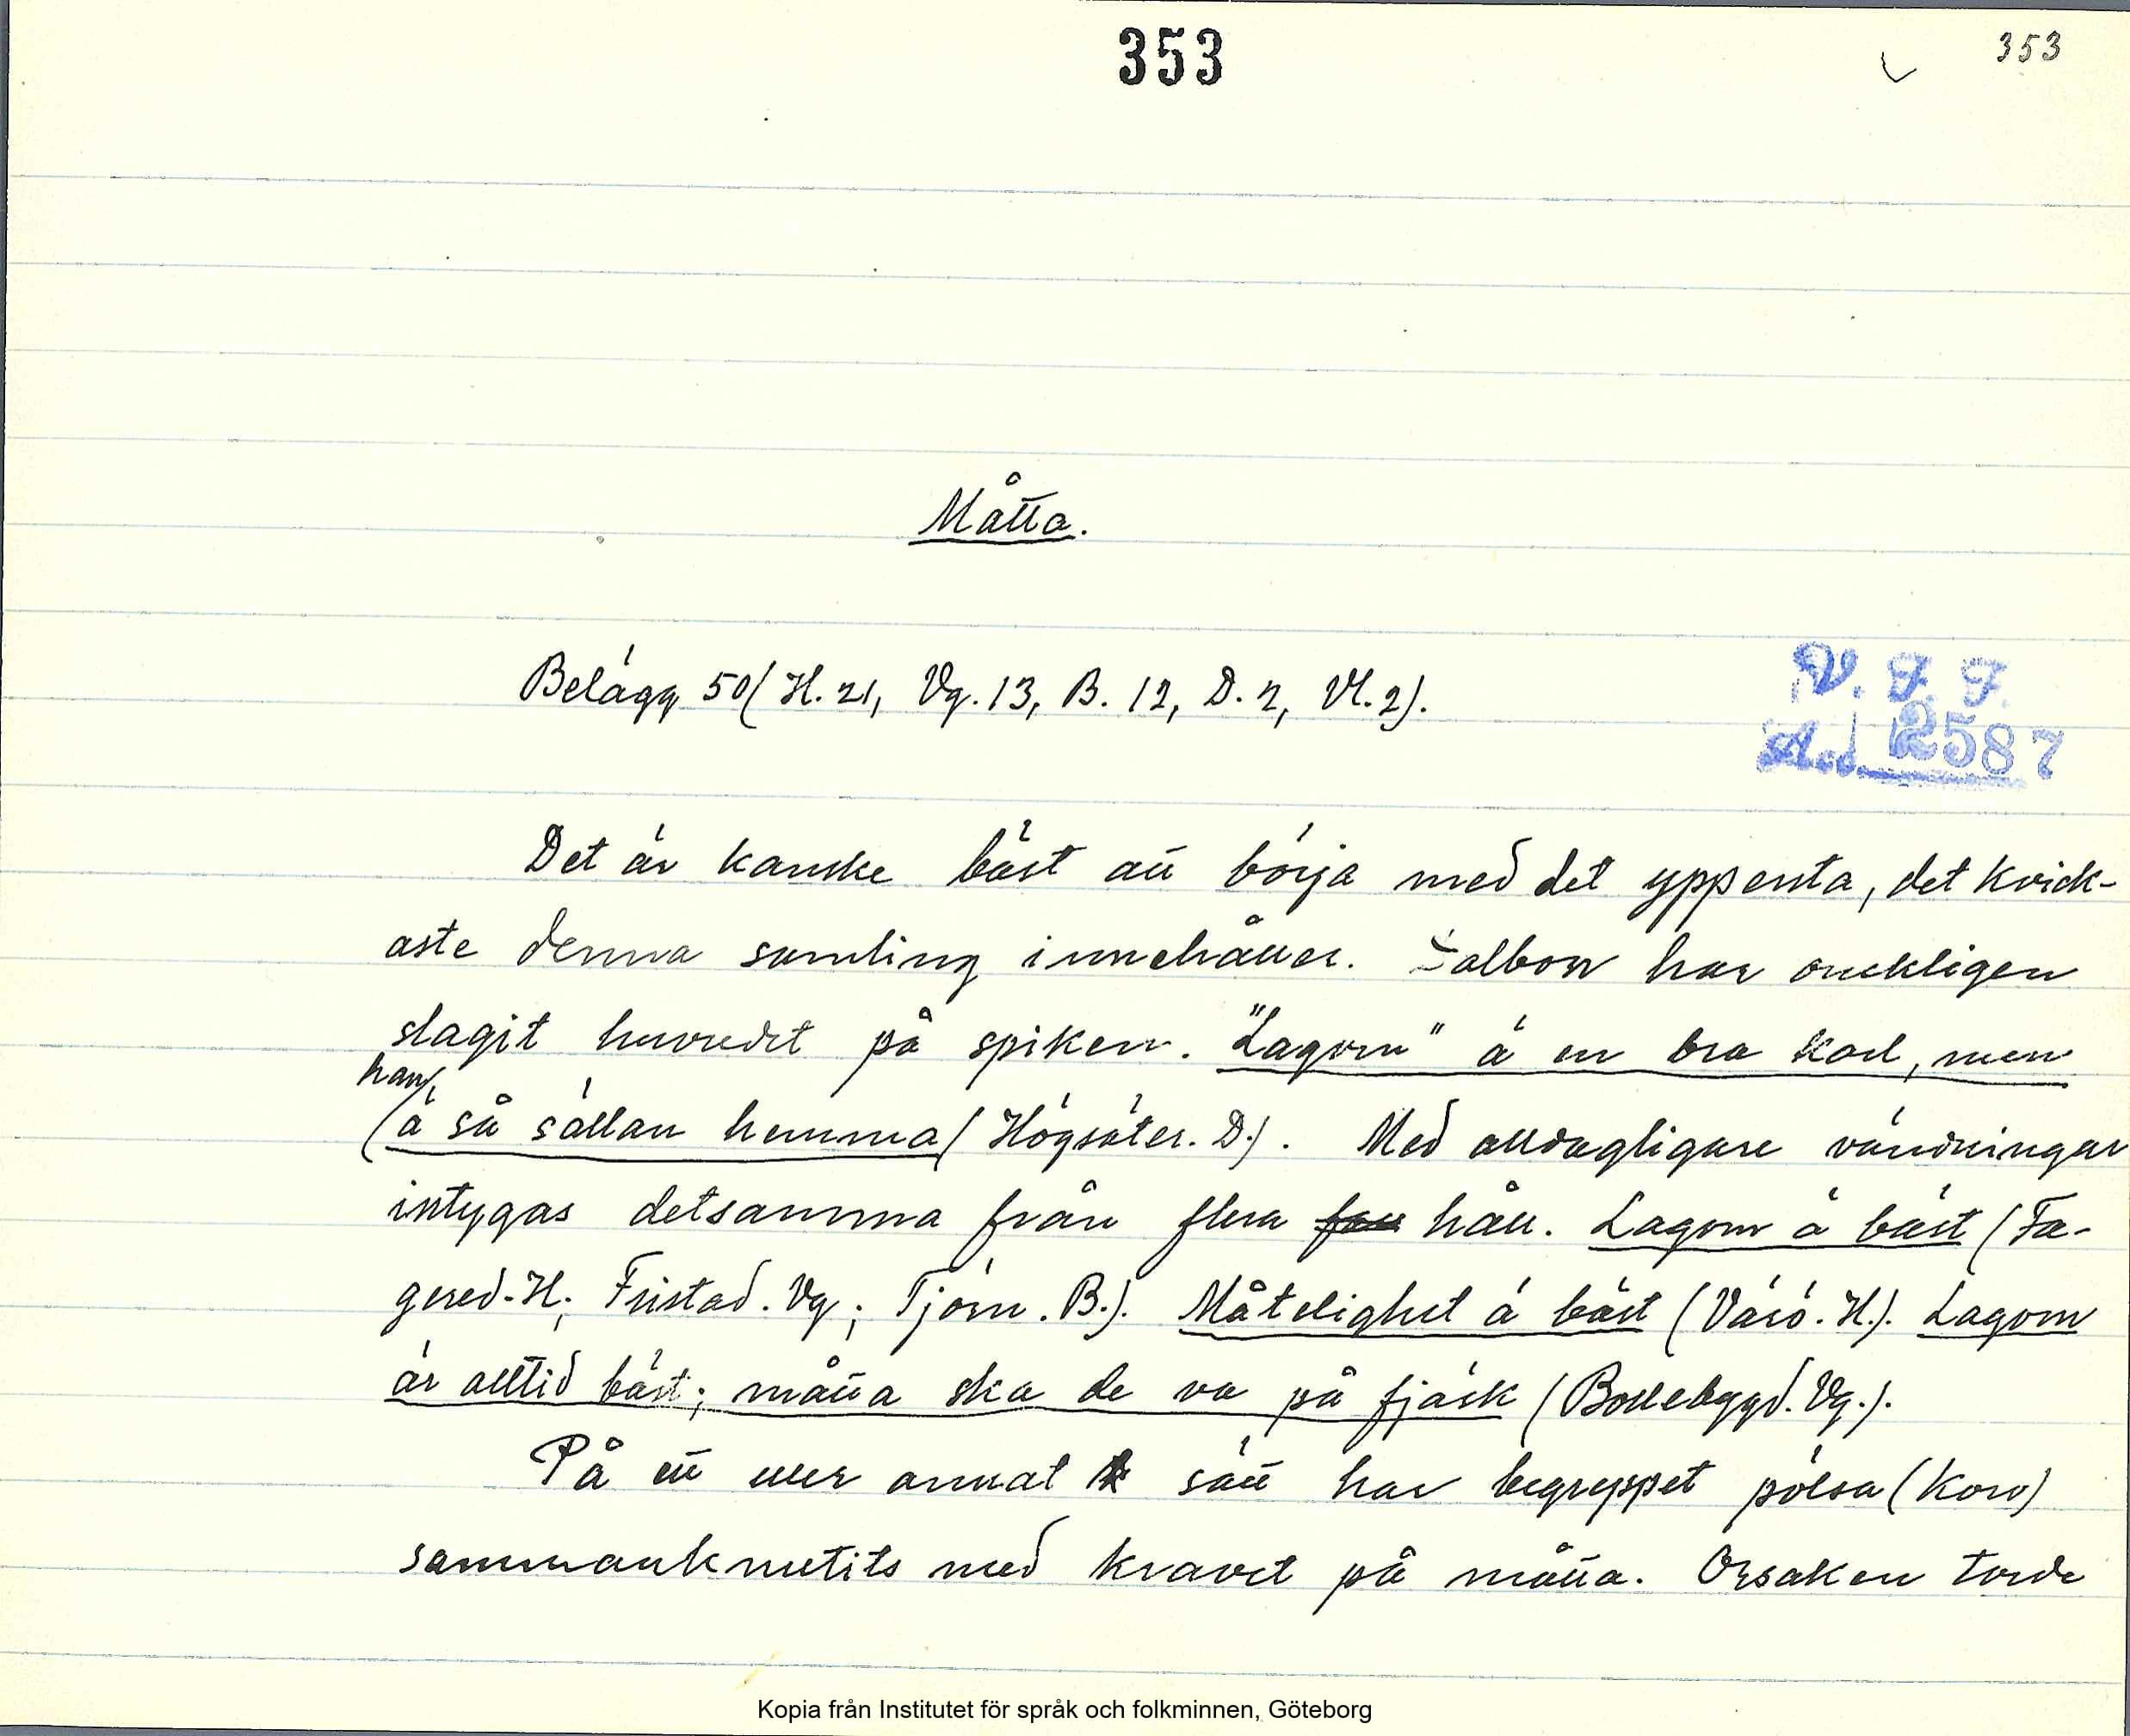 353
353
Måtta.
Belägg 50 (H. 21, Vg. 13, B. 12, D. 2, Vl. 2).
V. F. F.
Acc. 2587
Det är kanske bäst att börja med det yppersta, det kvick-
aste denna samling innehåller. Dalbon har onekligen
slagit huvudet på spiken. "Lagom" ä en bra karl, men
han
ä så sällan hemma (Högsäter. D.). Med alldagligare vändningar
intygas detsamma från flera håll. Lagom ä bäst (Fa-
gered-H.; Fristad. Vg.; Tjörn. B.). Måtelighet ä bäst (Värö. H.). Lagom
är alltid bäst; måtta ska de va på fjäsk (Bollebygd. Vg.).
På ett eller annat sätt har begreppet pölsa (korv)
sammanknutits med kravet på måtta. Orsaken torde
Kopia från Institutet för språk och folkminnen, Göteborg